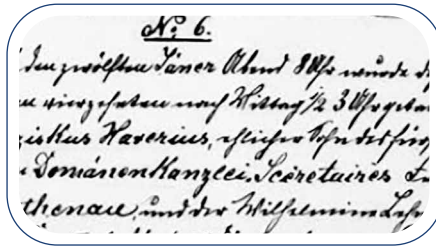 No 6.
den zwölften Jäner Abend 8 Uhr wurde
vierzehnten nach Mittag 1/2 3 Uhr
Xaverius, ehlicher Sohn des
Domänen Kanzlei Secretaires
thenau, und der Wilhelmine